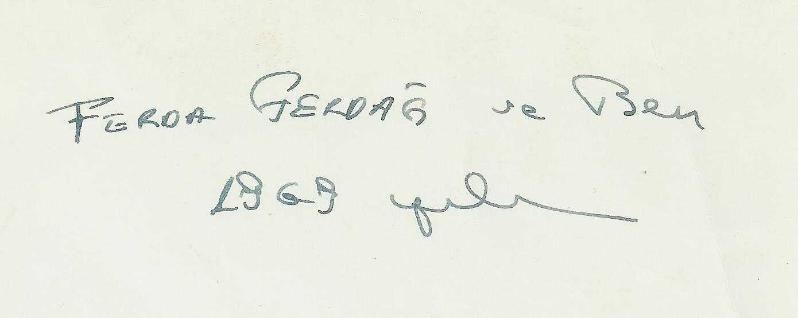 FERDA GERDAĞ ve Ben
1969 yılı